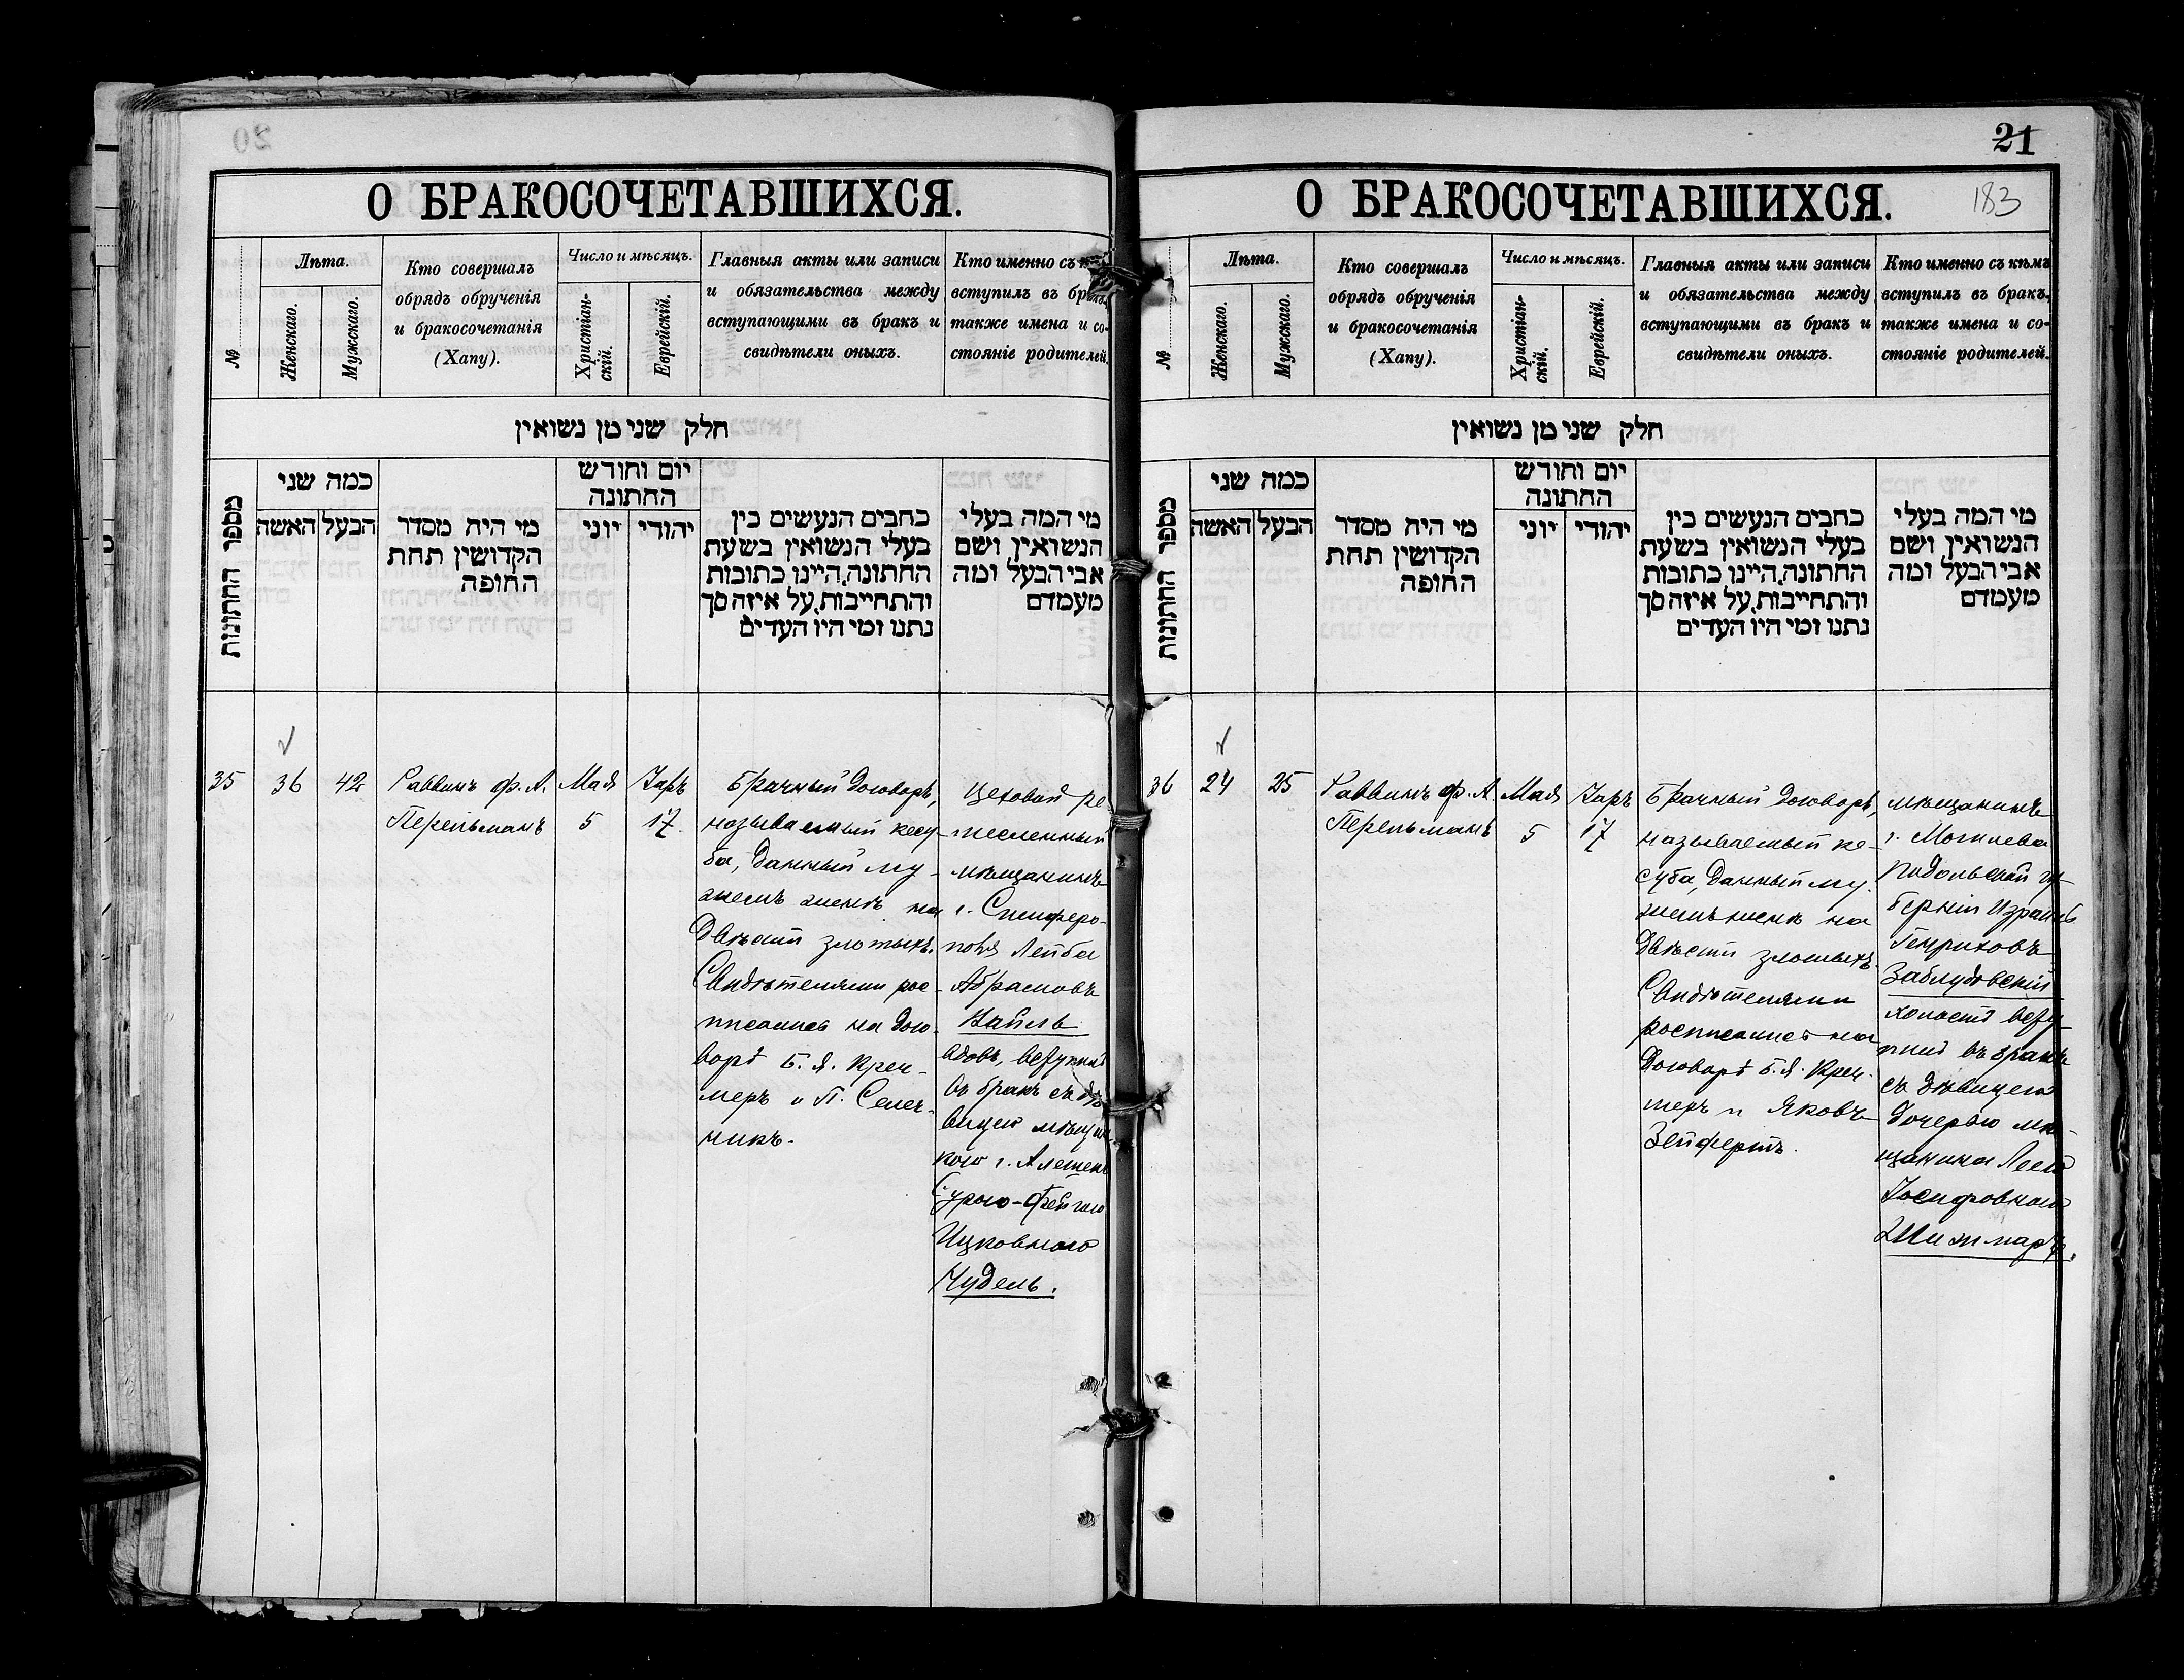 20
О БРАКОСОЧЕТАВШИХСЯ.
№
Лѣта.
Женскаго.
Мужскаго.
Кто совершалъ
обрядъ обрученія
и бракосочетанія
(Хапу).
Число и мѣсяцъ.
Христіан-
скій.
Еврейскій.
Главныя акты или записи
и обязательства между
вступающими въ бракъ и
свидѣтели оныхъ.
Кто именно съ
вступилъ въ бракъ,
также имена и со-
стояніе родителей.
חלק שני מן נשואין
מספר החתונות
כמה שני
האשה
הבעל
מי היה מסדר
הקדושין תחת
החופה
יום וחודש
החתונה
יוני
יהודי
כתבים הנעשים בין
בעלי הנשואין בשעת
החתונה.היינו כתובות
והתחייבות.על איזה סך
נתנו ומי היו העדים
מי המה בעלי
הנשואין ושם
אבי הבעל ומה
מעמדם
35
36
42
Раввинъ Ф. А.
Перельманъ
Мая
5
Іаръ
17.
Брачный договоръ,
называемый кесу-
ба, данный му-
жемъ женѣ на
двѣсти злотыхъ.
Свидѣтелями рос-
писались на дого-
ворѣ Б. Я. Креч-
меръ и П. Селеч-
никъ.
Цеховой ре-
месленный
мѣщанинъ
г. Симферо-
поля Лейба
Абрамовъ
Вайль
вдовъ, вступилъ
въ бракъ съ дѣ-
вицей мѣщан-
кою г. Алешекъ
Сурою-Фейгою
Ицковною
Нудель.
21
183
О БРАКОСОЧЕТАВШИХСЯ.
№
Лѣта.
Женскаго.
Мужскаго.
Кто совершалъ
обрядъ обрученія
и бракосочетанія
(Хапу).
Число и мѣсяцъ.
Христіан-
скій.
Еврейскій.
Главныя акты или записи
и обязательства между
вступающими въ бракъ и
свидѣтели оныхъ.
Кто именно съ кѣмъ
вступилъ въ бракъ,
также имена и со-
стояніе родителей.
חלק שני מן נשואין
מספר החתונות
כמה שני
האשה
הבעל
מי היה מסדר
הקדושין תחת
החופה
יום וחודש
החתונה
יוני
יהודי
כתבים הנעשים בין
בעלי הנשואין בשעת
החתונה.היינו כתובות
והתחייבות.על איזה סך
נתנו ומי היו העדים
מי המה בעלי
הנשואין ושם
אבי הבעל ומה
מעמדם
36
24
25
Раввинъ Ф. А
Перельманъ
Мая
5
Іаръ
17
Брачный договоръ,
называемый ке-
суба, данный му-
жемъ женѣ на
двѣсти злотыхъ.
Свидѣтелями
росписались на
договорѣ Б. Я. Креч-
меръ и Яковъ
Зейфертъ.
мѣщанинъ
г. Могилева
Подольской гу-
берніи Израиль
Генриховъ
Заблудовскій
холостъ всту-
пилъ въ бракъ
съ дѣвицею
дочерью мѣ-
щанина Леею
Іосифовною